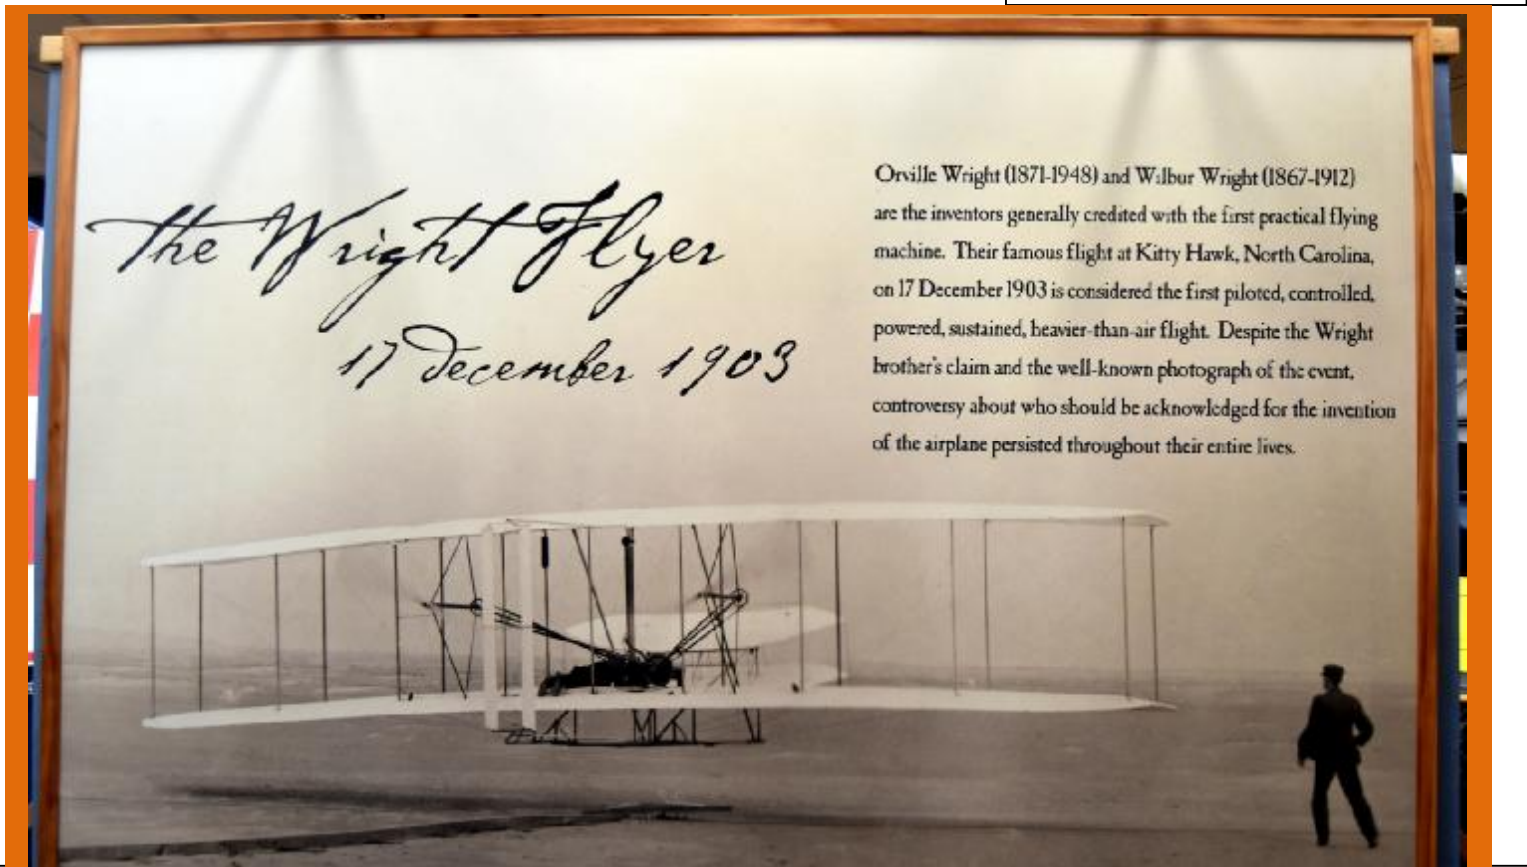 The Wright Flyer
17 December 1903
Orville Wright (1871-1948) and Wilbur Wright (1867-1912)
are the inventors generally credited with the first practical flying
machine. Their famous flight at Kitty Hawk, North Carolina,
on 17 December 1903 is considered the first piloted, controlled,
powered, sustained, heavier-than-air flight. Despite the Wright
brother's claim and the well-known photograph of the event,
controversy about who should be acknowledged for the invention
of the airplane persisted throughout their entire lives.